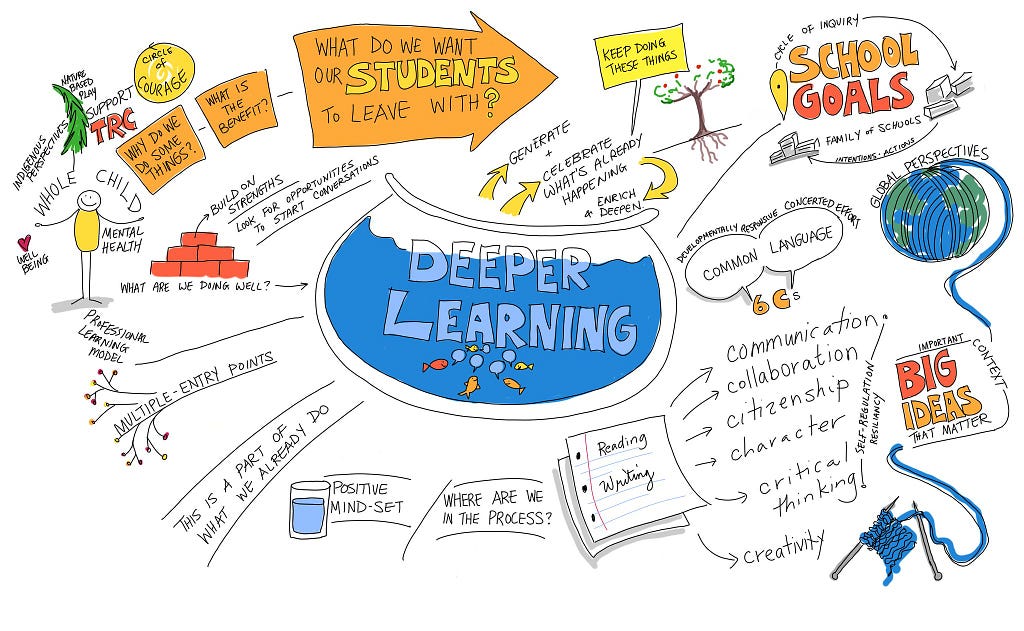 CIRCLE
of
COURAGE
NATURE
BASED
PLAY
SUPPORT
TRC
INDIGENOUS
PERSPECTIVES
WHY DO WE
DO SOME
THINGS?
WHAT IS
THE
BENEFIT?
WHAT DO WE WANT
OUR STUDENTS
TO LEAVE WITH?
KEEP DOING
THESE THINGS
GENERATE
+
CELEBRATE
WHAT'S ALREADY
HAPPENING
ENRICH
& DEEPEN
CYCLE OF INQUIRY
SCHOOL
GOALS
FAMILY OF SCHOOLS
INTENTIONS · ACTIONS
GLOBAL PERSPECTIVES
WHOLE CHILD
MENTAL
HEALTH
WELL
BEING
BUILD ON
STRENGTHS
LOOK FOR OPPORTUNITIES
TO START CONVERSATIONS
WHAT ARE WE DOING WELL?
DEEPER
LEARNING
DEVELOPMENTALLY RESPONSIVE
CONCERTED EFFORTS
COMMON LANGUAGE
6 Cs
PROFESSIONAL
LEARNING
MODEL
MULTIPLE-ENTRY POINTS
THIS IS A PART OF
WHAT WE ALREADY DO
POSITIVE
MIND-SET
WHERE ARE WE
IN THE PROCESS?
Reading
Writing
communication
collaboration
citizenship
character
critical
thinking
creativity
SELF-REGULATION
RESILIANCY
IMPORTANT
BIG
IDEAS
THAT MATTER
CONTEXT